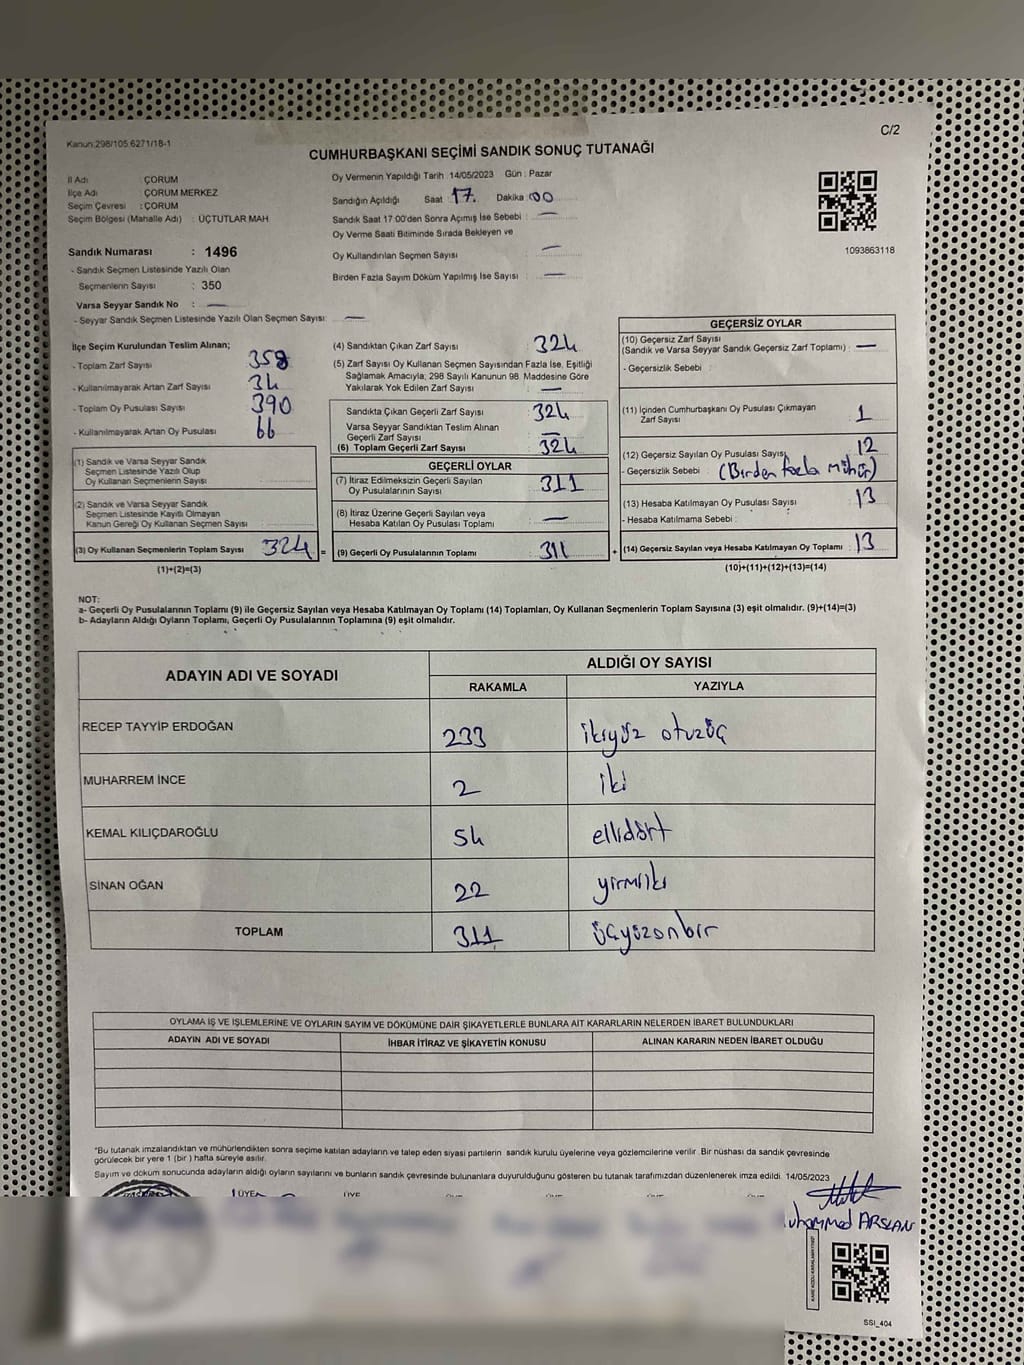 C/2
Kanun:298/105.6271/18-1
CUMHURBAŞKANI SEÇİMİ SANDIK SONUÇ TUTANAĞI
İl Adı : ÇORUM
İlçe Adı : ÇORUM MERKEZ
Seçim Çevresi : ÇORUM
Seçim Bölgesi (Mahalle Adı) : ÜÇTUTLAR MAH
Sandık Numarası : 1496
- Sandık Seçmen Listesinde Yazılı Olan
Seçmenlerin Sayısı : 350
Varsa Seyyar Sandık No : —
- Seyyar Sandık Seçmen Listesinde Yazılı Olan Seçmen Sayısı: —
Oy Vermenin Yapıldığı Tarih : 14/05/2023 Gün : Pazar
Sandığın Açıldığı Saat 17. Dakika 00
Sandık Saat 17:00'den Sonra Açımış İse Sebebi : —
Oy Verme Saati Bitiminde Sırada Bekleyen ve
Oy Kullandırılan Seçmen Sayısı : —
Birden Fazla Sayım Döküm Yapılmış İse Sayısı : —
1093863118
İlçe Seçim Kurulundan Teslim Alınan;
- Toplam Zarf Sayısı : 358
- Kullanılmayarak Artan Zarf Sayısı : 34
- Toplam Oy Pusulası Sayısı : 390
- Kullanılmayarak Artan Oy Pusulası : 66
(1) Sandık ve Varsa Seyyar Sandık
Seçmen Listesinde Yazılı Olup
Oy Kullanan Seçmenlerin Sayısı :
(2) Sandık ve Varsa Seyyar Sandık
Seçmen Listesinde Kayıtlı Olmayan
Kanun Gereği Oy Kullanan Seçmen Sayısı :
(3) Oy Kullanan Seçmenlerin Toplam Sayısı : 324 =
(1)+(2)=(3)
(4) Sandıktan Çıkan Zarf Sayısı : 324
(5) Zarf Sayısı Oy Kullanan Seçmen Sayısından Fazla İse, Eşitliği
Sağlamak Amacıyla; 298 Sayılı Kanunun 98. Maddesine Göre
Yakılarak Yok Edilen Zarf Sayısı : —
Sandıkta Çıkan Geçerli Zarf Sayısı : 324
Varsa Seyyar Sandıktan Teslim Alınan
Geçerli Zarf Sayısı : —
(6) Toplam Geçerli Zarf Sayısı : 324
GEÇERLİ OYLAR
(7) İtiraz Edilmeksizin Geçerli Sayılan
Oy Pusulalarının Sayısı : 311
(8) İtiraz Üzerine Geçerli Sayılan veya
Hesaba Katılan Oy Pusulası Toplamı : —
(9) Geçerli Oy Pusulalarının Toplamı : 311 +
GEÇERSİZ OYLAR
(10) Geçersiz Zarf Sayısı
(Sandık ve Varsa Seyyar Sandık Geçersiz Zarf Toplamı) : —
- Geçersizlik Sebebi :
(11) İçinden Cumhurbaşkanı Oy Pusulası Çıkmayan
Zarf Sayısı : 1
(12) Geçersiz Sayılan Oy Pusulası Sayısı : 12
- Geçersizlik Sebebi : (Birden fazla mühür)
(13) Hesaba Katılmayan Oy Pusulası Sayısı : 13
- Hesaba Katılmama Sebebi :
(14) Geçersiz Sayılan veya Hesaba Katılmayan Oy Toplamı : 13
(10)+(11)+(12)+(13)=(14)
NOT:
a- Geçerli Oy Pusulalarının Toplamı (9) ile Geçersiz Sayılan veya Hesaba Katılmayan Oy Toplamı (14) Toplamları, Oy Kullanan Seçmenlerin Toplam Sayısına (3) eşit olmalıdır. (9)+(14)=(3)
b- Adayların Aldığı Oyların Toplamı, Geçerli Oy Pusulalarının Toplamına (9) eşit olmalıdır.
ADAYIN ADI VE SOYADI
ALDIĞI OY SAYISI
RAKAMLA YAZIYLA
RECEP TAYYİP ERDOĞAN 233 ikiyüz otuzüç
MUHARREM İNCE 2 iki
KEMAL KILIÇDAROĞLU 54 ellidört
SİNAN OĞAN 22 yirmiiki
TOPLAM 311 üçyüzonbir
OYLAMA İŞ VE İŞLEMLERİNE VE OYLARIN SAYIM VE DÖKÜMÜNE DAİR ŞİKAYETLERLE BUNLARA AİT KARARLARIN NELERDEN İBARET BULUNDUKLARI
ADAYIN ADI VE SOYADI İHBAR İTİRAZ VE ŞİKAYETİN KONUSU ALINAN KARARIN NEDEN İBARET OLDUĞU
*Bu tutanak imzalandıktan ve mühürlendikten sonra seçime katılan adayların ve talep eden siyasi partilerin sandık kurulu üyelerine veya gözlemcilerine verilir. Bir nüshası da sandık çevresinde
görülecek bir yere 1 (bir ) hafta süreyle asılır.
Sayım ve döküm sonucunda adayların aldığı oyların sayılarını ve bunların sandık çevresinde bulunanlara duyurulduğunu gösteren bu tutanak tarafımızdan düzenlenerek imza edildi. 14/05/2023
ÜYE ÜYE
Muhammed ARSLAN
SSI_404